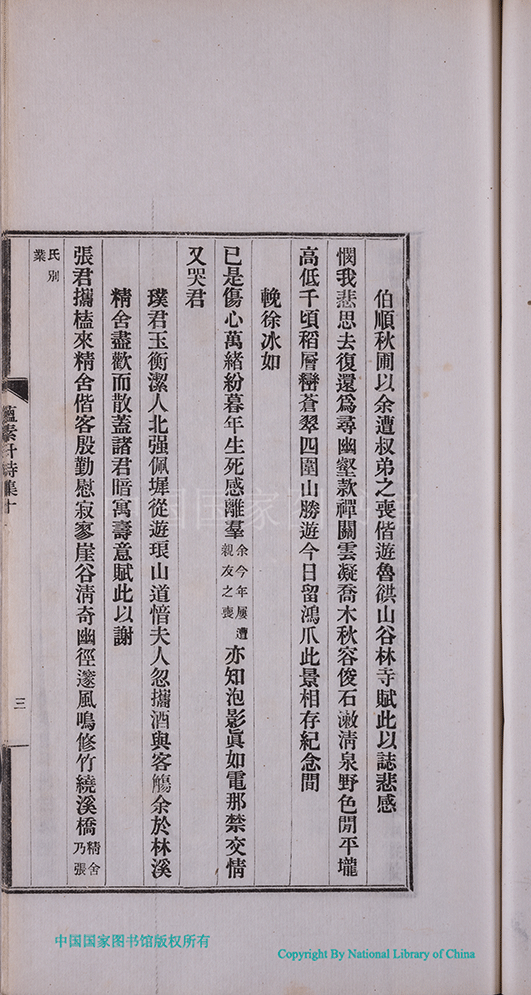 伯順秋圃以余遭叔弟之喪偕遊魯谼山谷林寺賦此以誌悲感
憫我悲思去復還爲尋幽壑款禪關雲凝喬木秋容俊石漱淸泉野色閒平壠
高低千頃稻層巒蒼翠四圍山勝遊今日留鴻爪此景相存紀念間
輓徐冰如
已是傷心萬緒紛暮年生死感離羣余今年屢遭親友之喪亦知泡影眞如電那禁交情
又哭君
璞君玉衡潔人北强佩墀從遊琅山道愔夫人忽攜酒與客觴余於林溪
精舍盡歡而散蓋諸君暗寓壽意賦此以謝
張君攜榼來精舍偕客殷勤慰寂寥崖谷淸奇幽徑邃風鳴修竹繞溪橋精舍乃張
氏別業
蘊素軒詩集十一
三
中国国家图书馆版权所有
Copyright By National Library of China